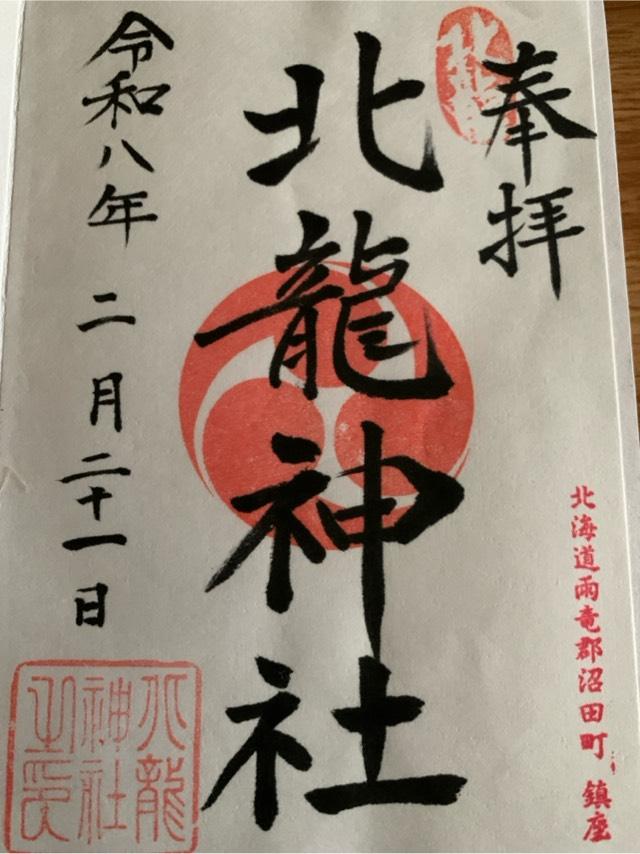 奉拝
北龍神社
令和八年 二月二十一日
北海道雨竜郡沼田町 鎮座
北龍
神社
之印